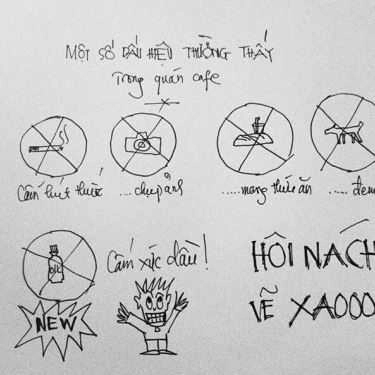 MỘT SỐ DẤU HIỆU THƯỜNG THẤY
Trong quán cafe
Cấm hút thuốc
....chụp ảnh
.....mang thức ăn
..... đem
oil
Cấm xức dầu!
NEW
HÔI NÁCH
VẼ XAOOO